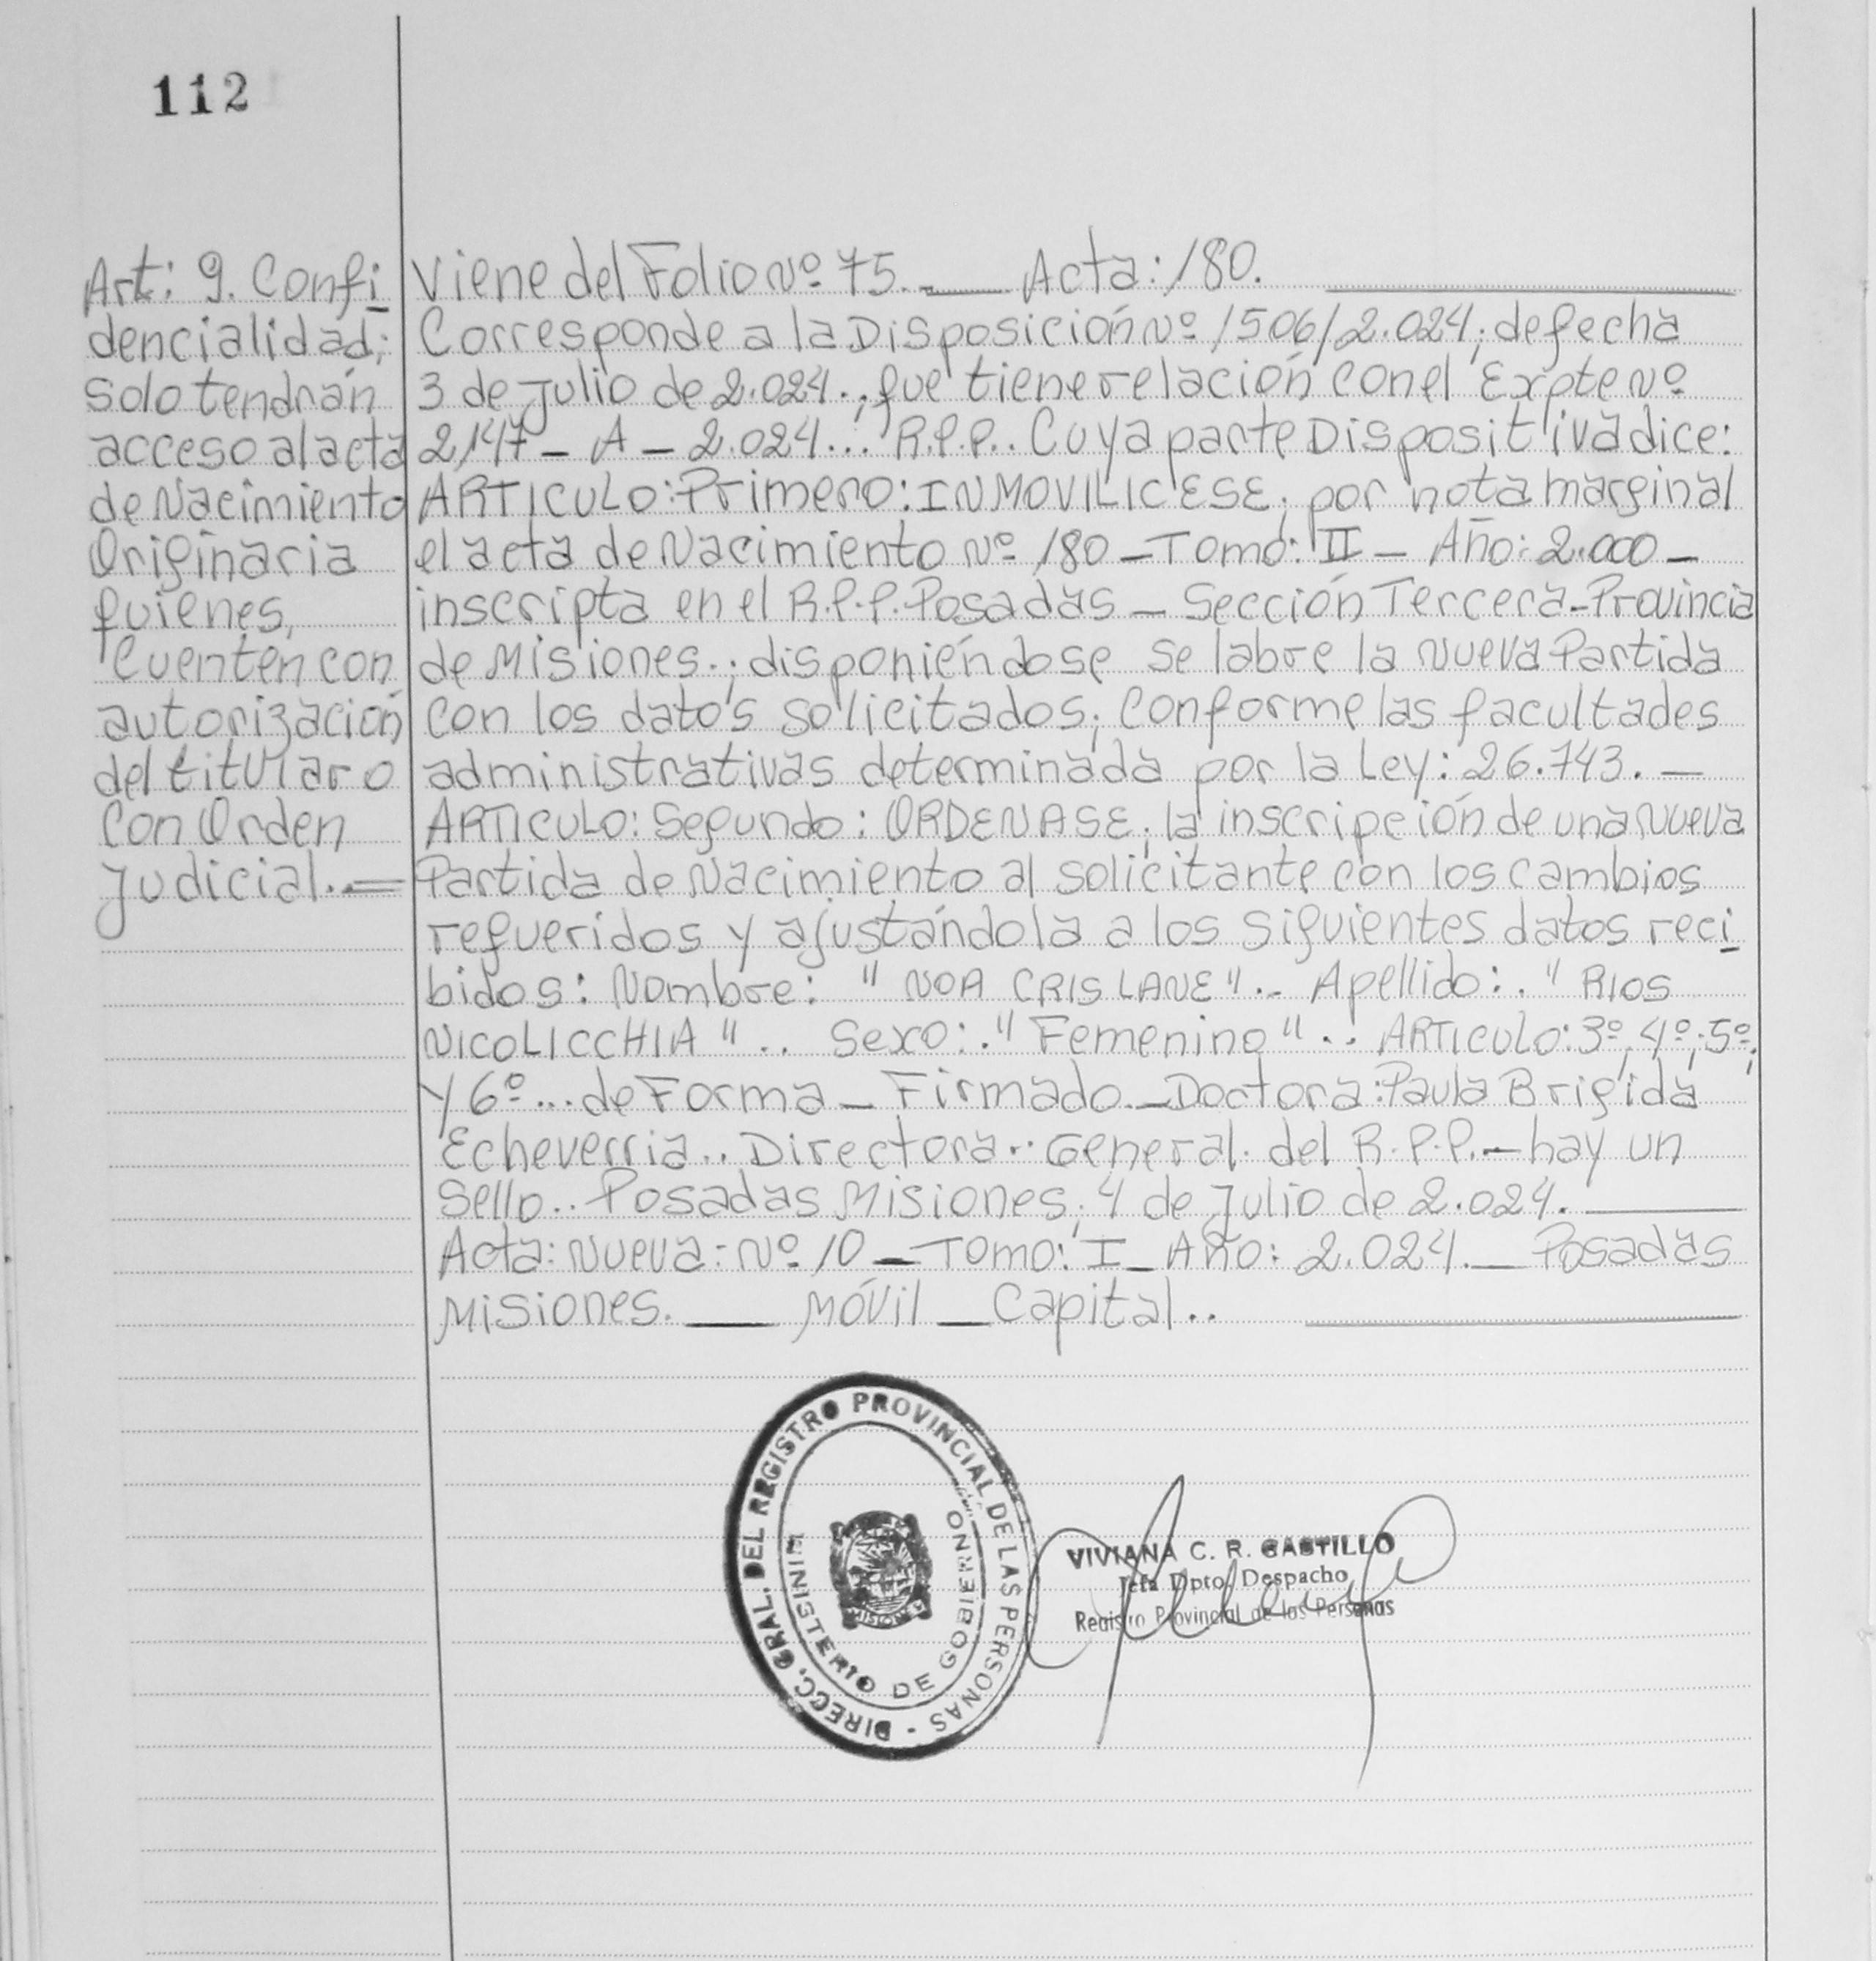 112
Art: 9. Confi
dencialidad;
solo tendrán
acceso al acta
de Nacimiento
Originaria
quienes,
Cuenten con
autorización
del titular o
Con Orden
Judicial. =
Viene del Folio Nº 75. — Acta: 180. —
Corresponde a la Disposición Nº 1506/2.024; de fecha
3 de Julio de 2.024.; que tiene relación con el Expte Nº
2147 _ A _ 2.024... R.P.P.. Cuya parte Dispositiva dice:
ARTICULO: Primero: INMOVILICESE, por nota marginal
el acta de Nacimiento Nº 180 _ Tomo: II _ Año: 2.000 _
inscripta en el R.P.P. Posadas _ Sección Tercera _ Provincia
de Misiones.; disponiéndose se labre la nueva Partida
con los datos solicitados; conforme las facultades
administrativas determinada por la Ley: 26.743. —
ARTICULO: Segundo: ORDENASE, la inscripción de una nueva
Partida de Nacimiento al solicitante con los cambios
requeridos y ajustándola a los siguientes datos reci
bidos: Nombre: "NOA CRISLANE".. Apellido:. "RIOS
NICOLICCHIA".. Sexo:. "Femenino".. ARTICULO: 3º; 4º; 5º;
y 6º... de Forma _ Firmado. _ Doctora: Paula Brigida
Echeverria.. Directora.. General. del R.P.P. — hay un
sello.. Posadas Misiones; 4 de Julio de 2.024. —
Acta: Nueva: Nº 10 _ Tomo: I _ Año: 2.024. _ Posadas
Misiones. — Móvil _ Capital.. —
DIRECC. GRAL. DEL REGISTRO PROVINCIAL DE LAS PERSONAS -
MINISTERIO DE GOBIERNO
MISIONES
VIVIANA C. R. CASTILLO
Jefa Dpto. Despacho
Registro Provincial de las Personas